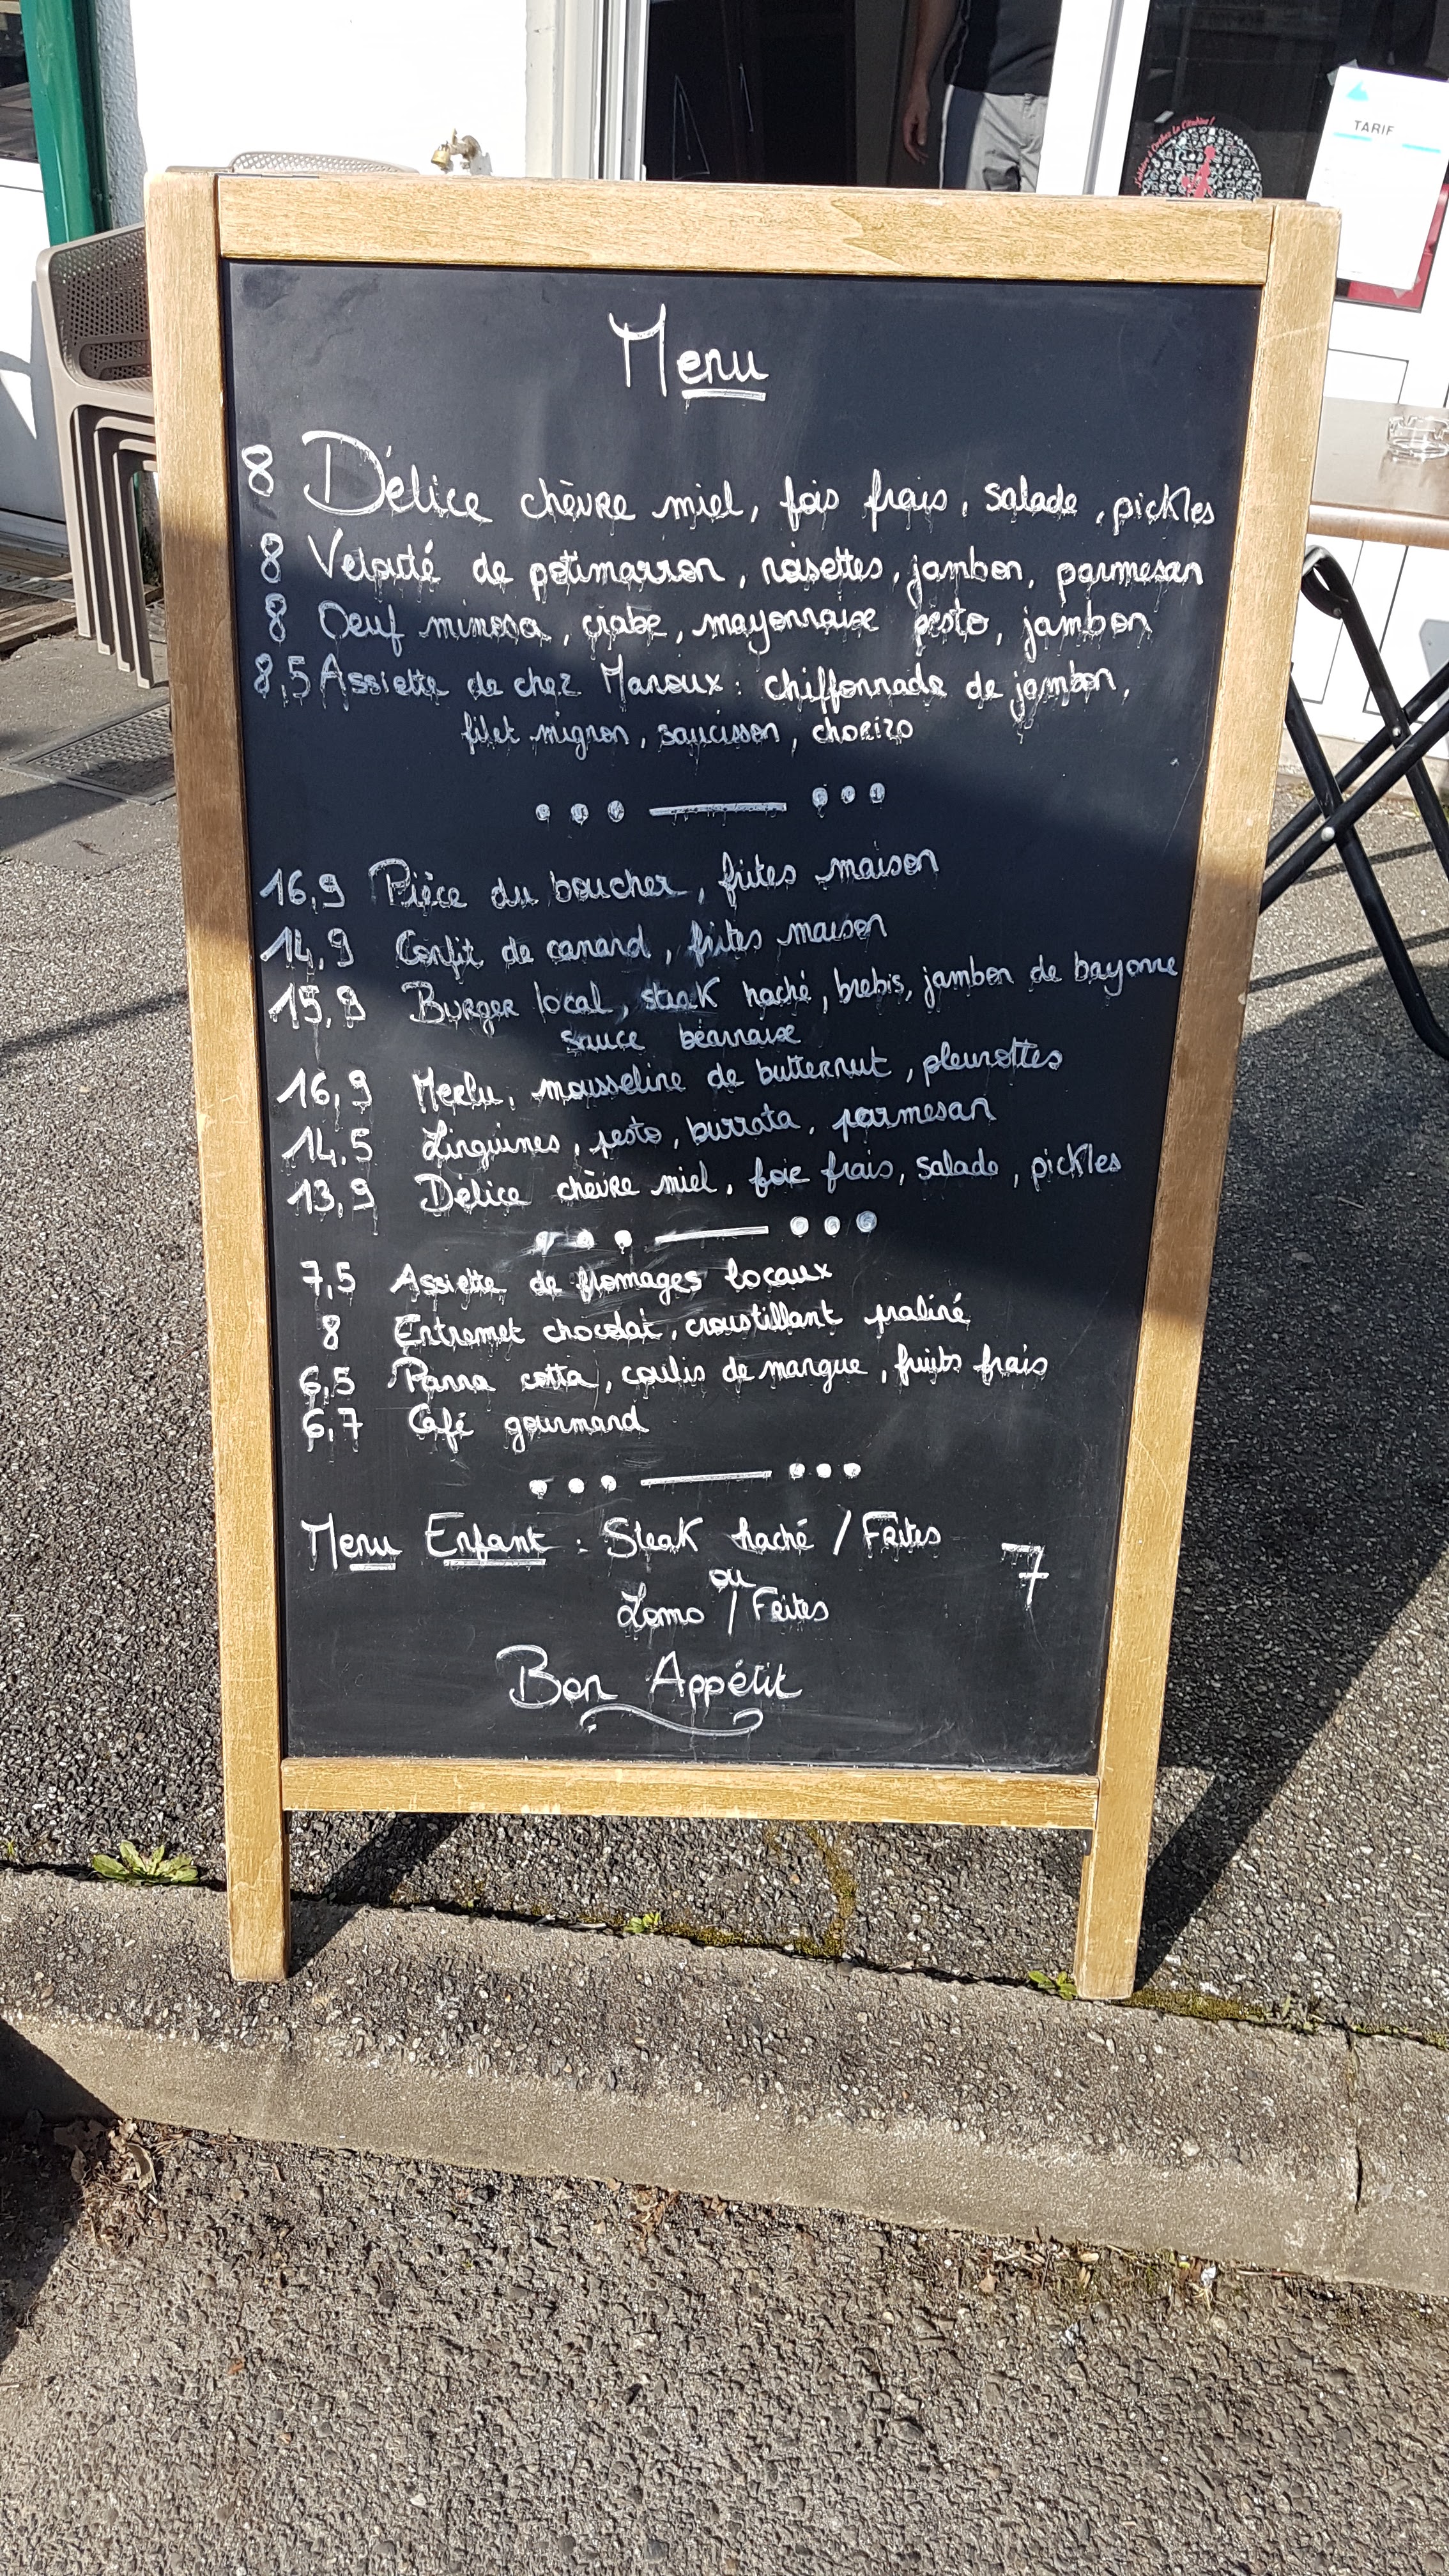 TARIF
Menu
8 Délice chèvre miel, fois frais, salade, pickles
8 Velouté de potimarron, noisettes, jambon, parmesan
8 Oeuf mimosa, crabe, mayonnaise pesto, jambon
8,5 Assiette de chez Manoux : chiffonnade de jambon,
filet mignon, saucisson, chorizo
16,9 Pièce du boucher, frites maison
14,9 Confit de canard, frites maison
15,9 Burger local, steak haché, brebis, jambon de bayonne
sauce béarnaise
16,9 Merlu, mousseline de butternut, pleurottes
14,5 Linguines, pesto, burrata, parmesan
13,9 Délice chèvre miel, foie frais, salade, pickles
7,5 Assiette de fromages locaux
8 Entremet chocolat, croustillant praliné
6,5 Panna cotta, coulis de mangue, fruits frais
6,7 Café gourmand
Menu Enfant : Steak haché / Frites 7
ou
Lomo / Frites
Bon Appétit